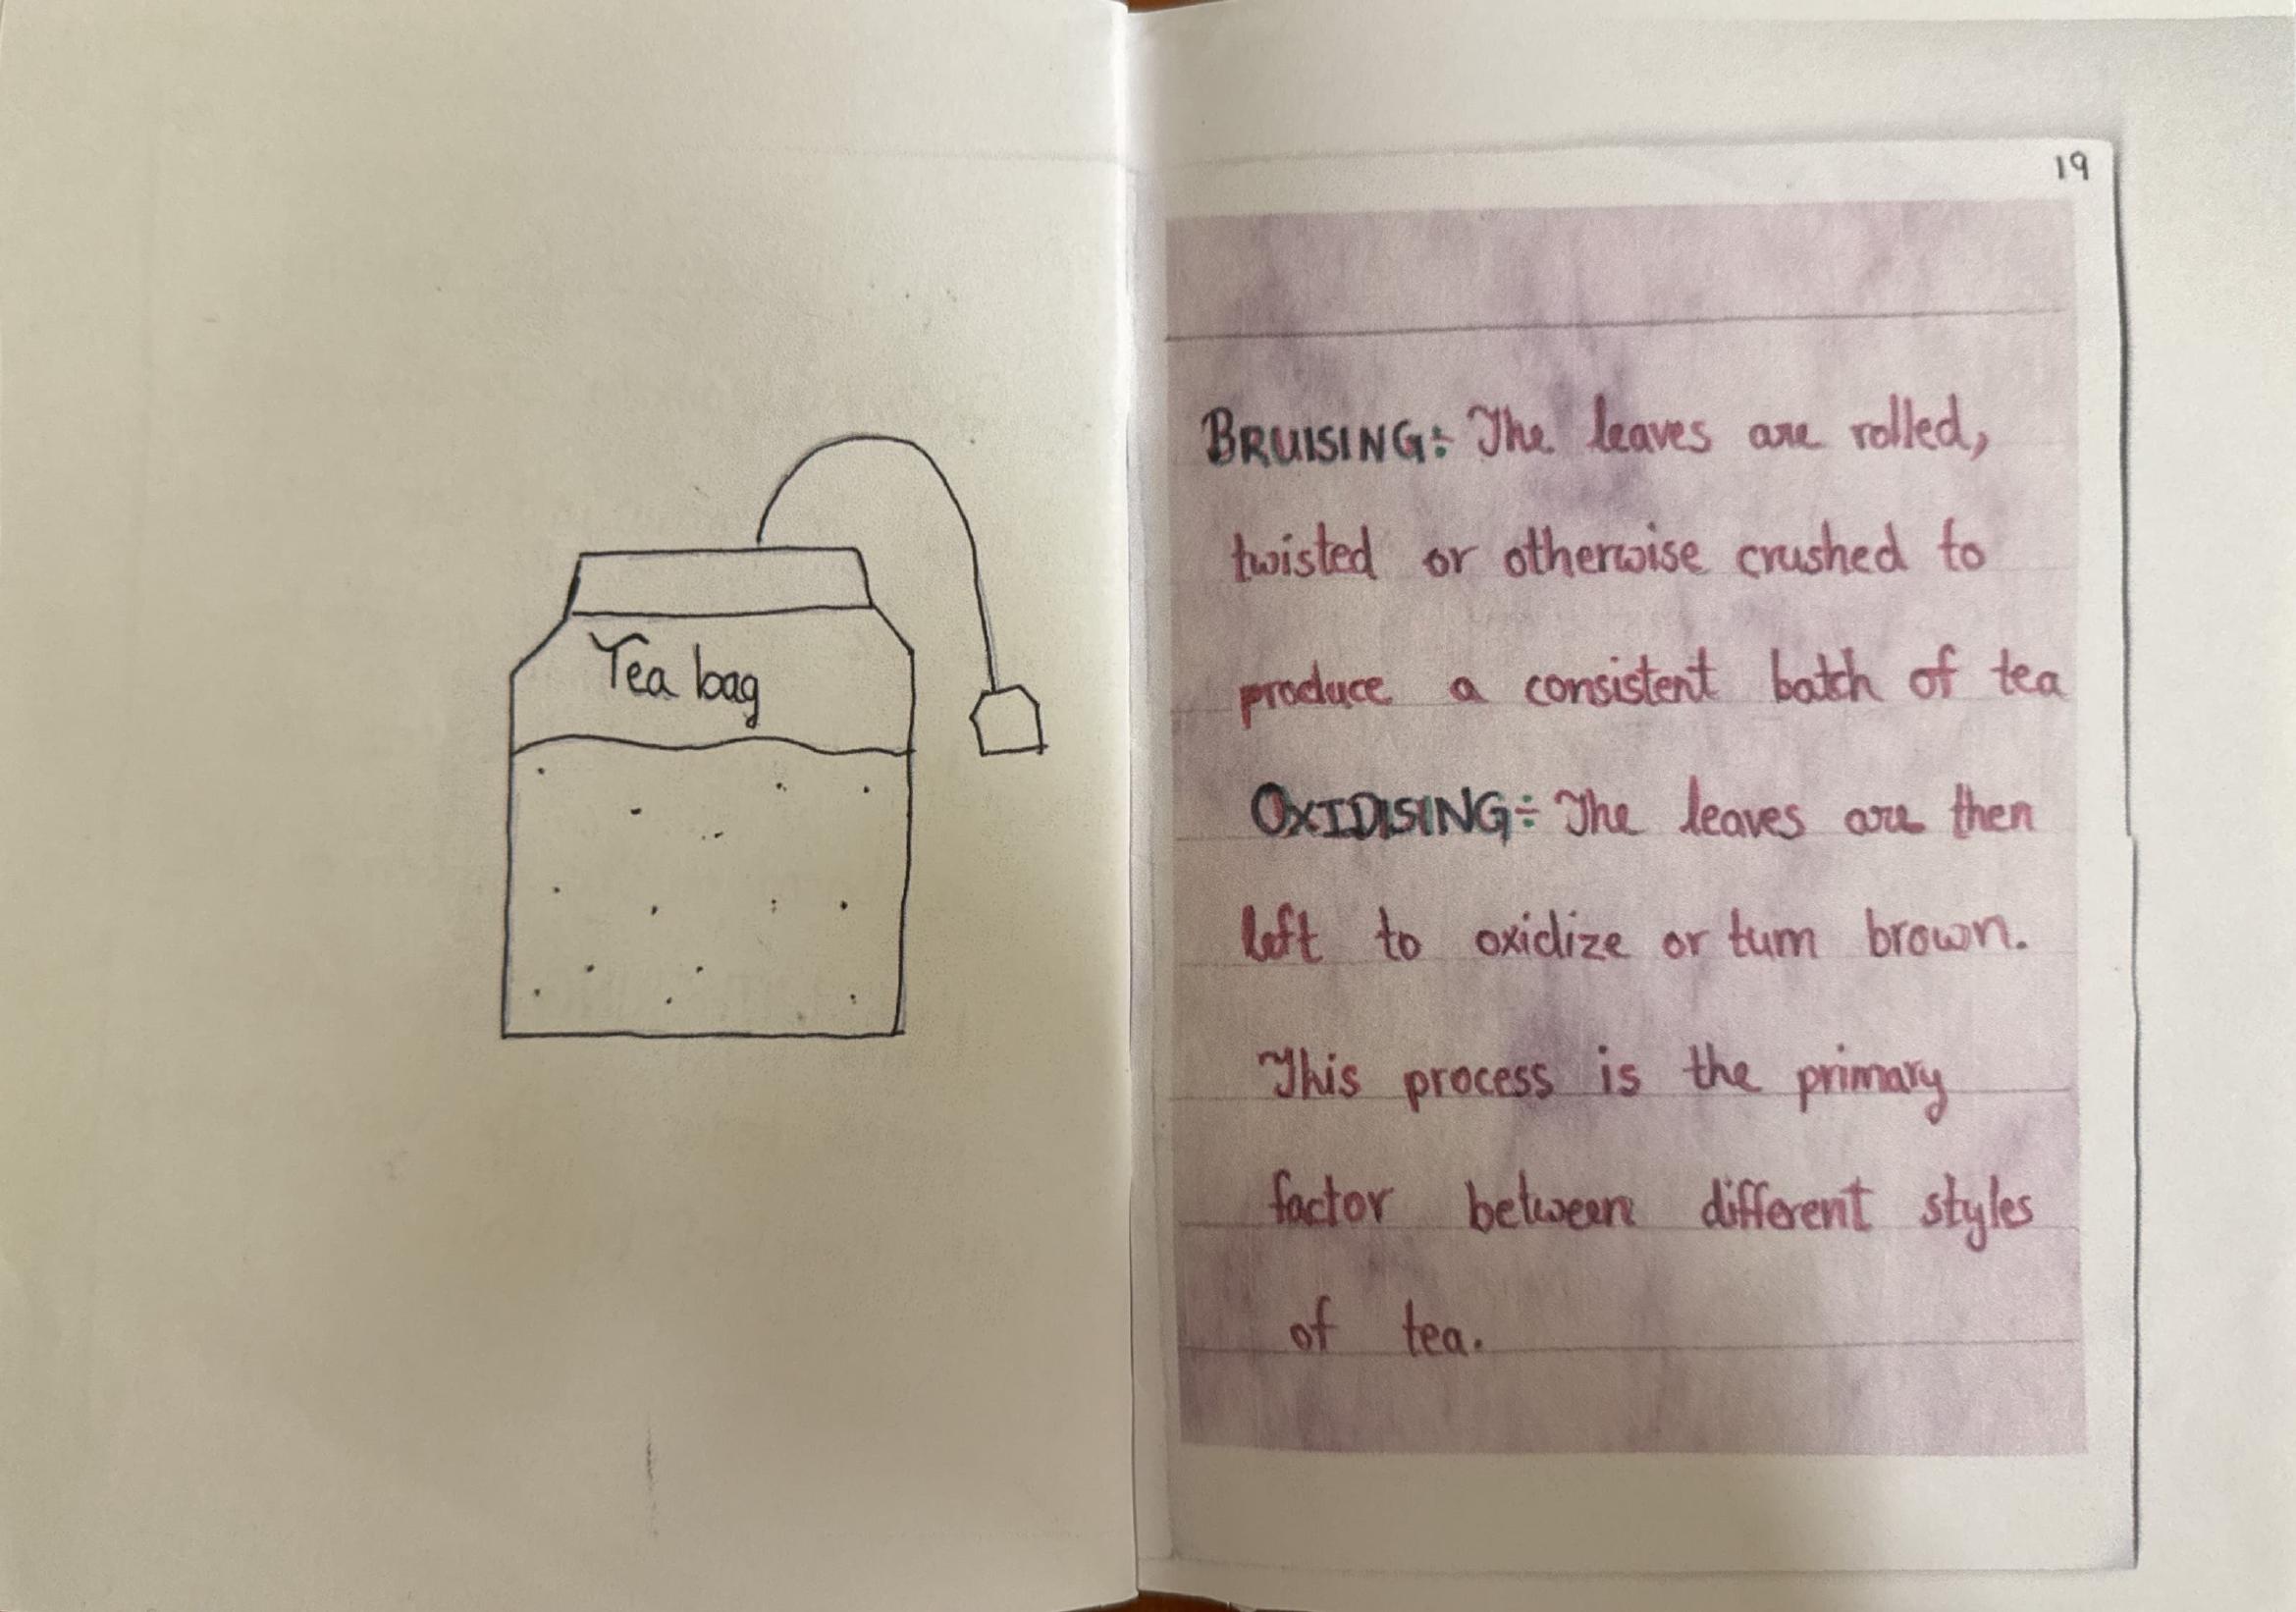 Tea bag
19
BRUISING:- The leaves are rolled,
twisted or otherwise crushed to
produce a consistent batch of tea
OXIDISING:- The leaves are then
left to oxidize or turn brown.
This process is the primary
factor between different styles
of tea.